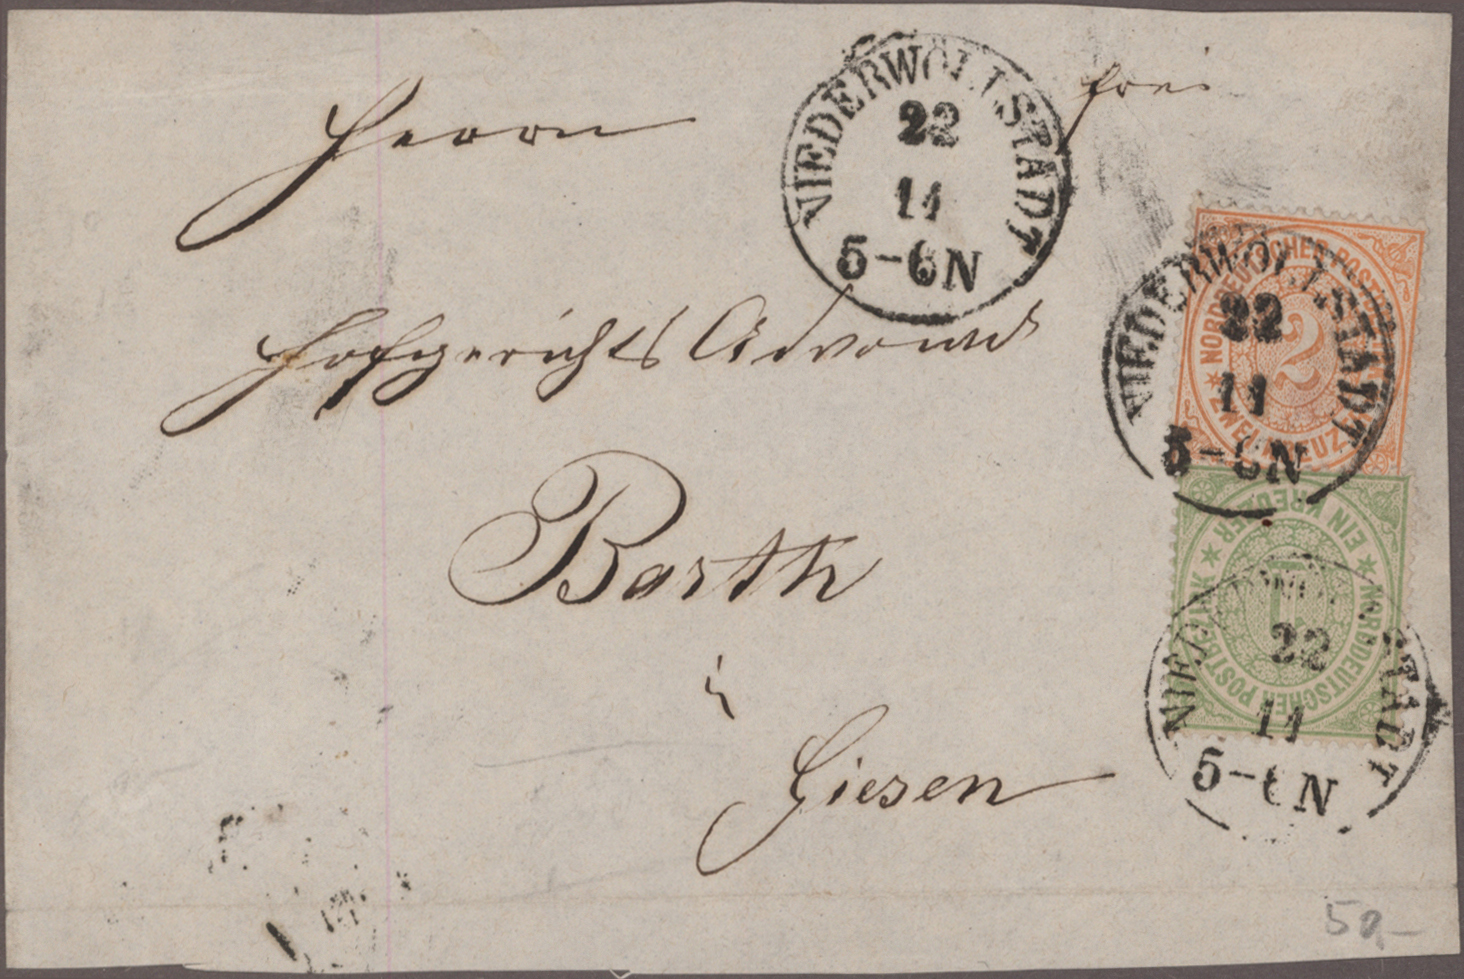 frei
Herrn
NIEDERWÖLLSTADT
22
11
5-6N
Hofgerichts Advocat
Barth
in
Giesen
NORDDEUTSCHER POSTBEZIRK
2
ZWEI KREUZER
NIEDERWÖLLSTADT
22
11
5-6N
EIN KREUZER
NORDDEUTSCHER POSTBEZIRK
1
NIEDERWÖLLSTADT
22
11
5-6N